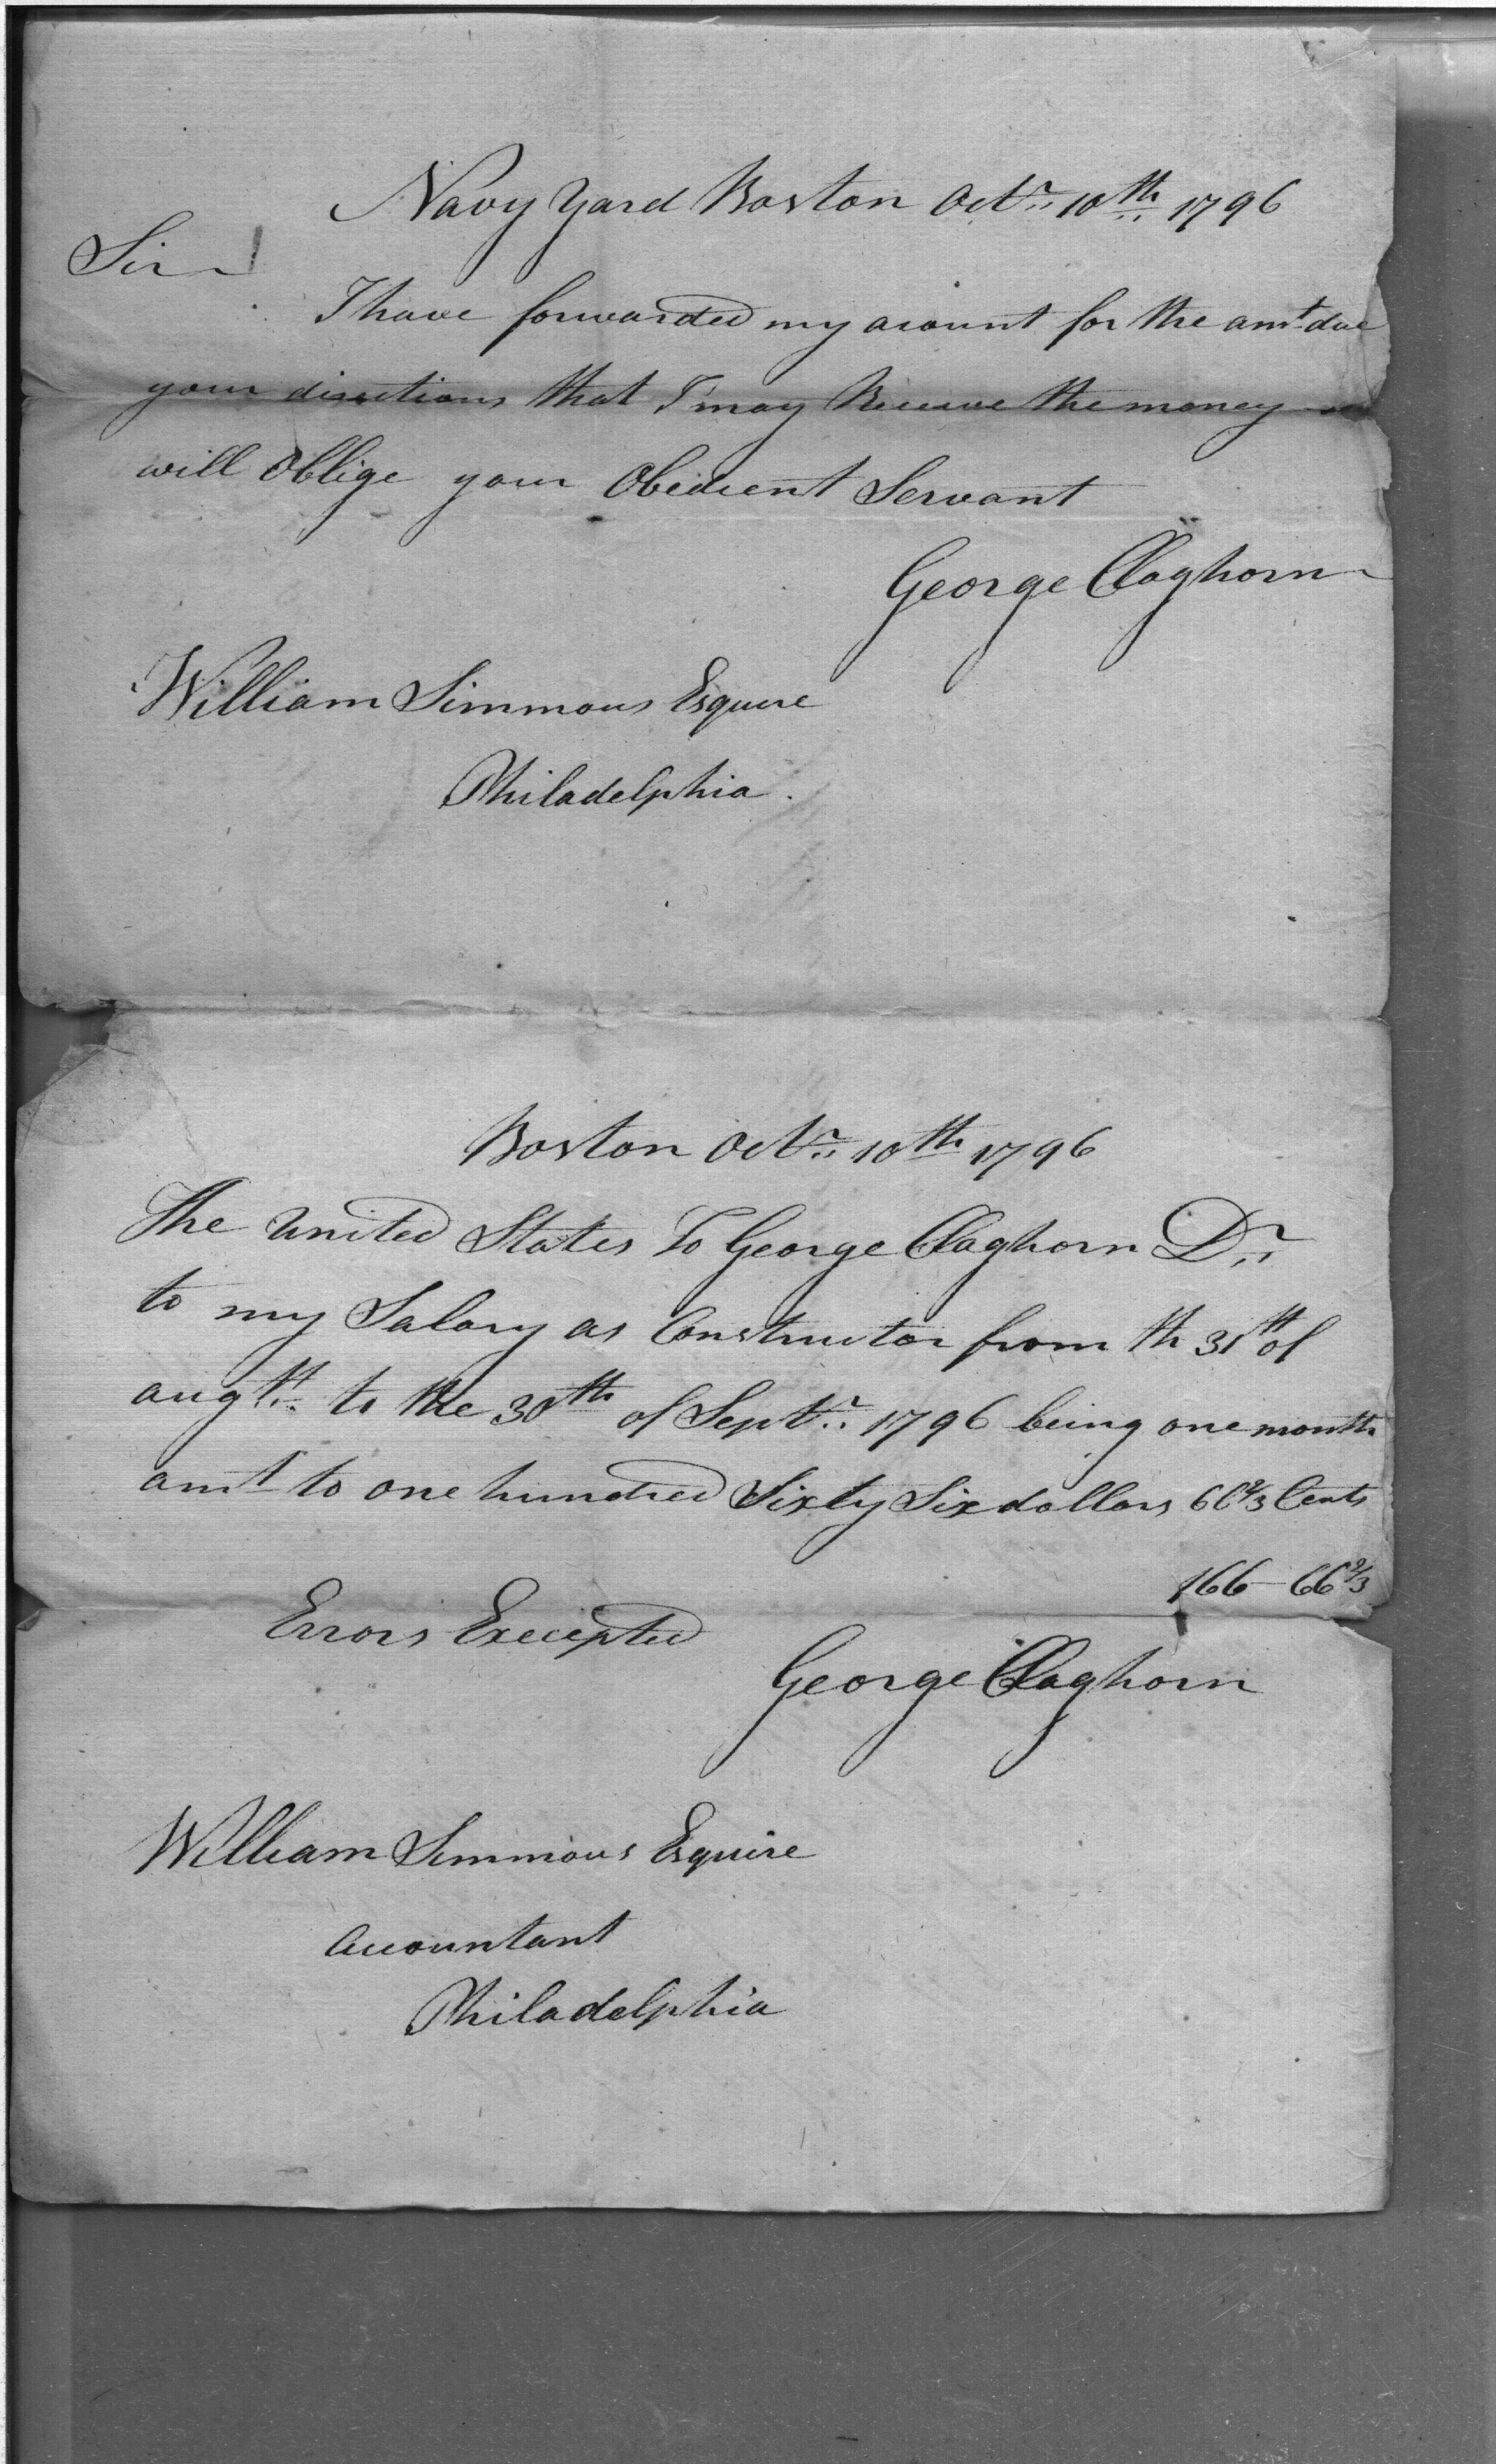 Navy Yard Boston Octr 10th 1796
Sir
I have forwarded my acount for the amt due
your directions that I may Receive the money
will oblige your Obedient Servant
George Claghorn
William Simmons Esquire
Philadelphia.
Boston Octr 10th 1796
The United States To George Claghorn Dr
to my Salary as Constructor from th 31th of
augtt to the 30th of Septr 1796 being one month
amt to one hundred Sixty Six dollars 66 2/3 Cents
166-66 2/3
Errors Excepted
George Claghorn
William Simmons Esquire
Accountant
Philadelphia